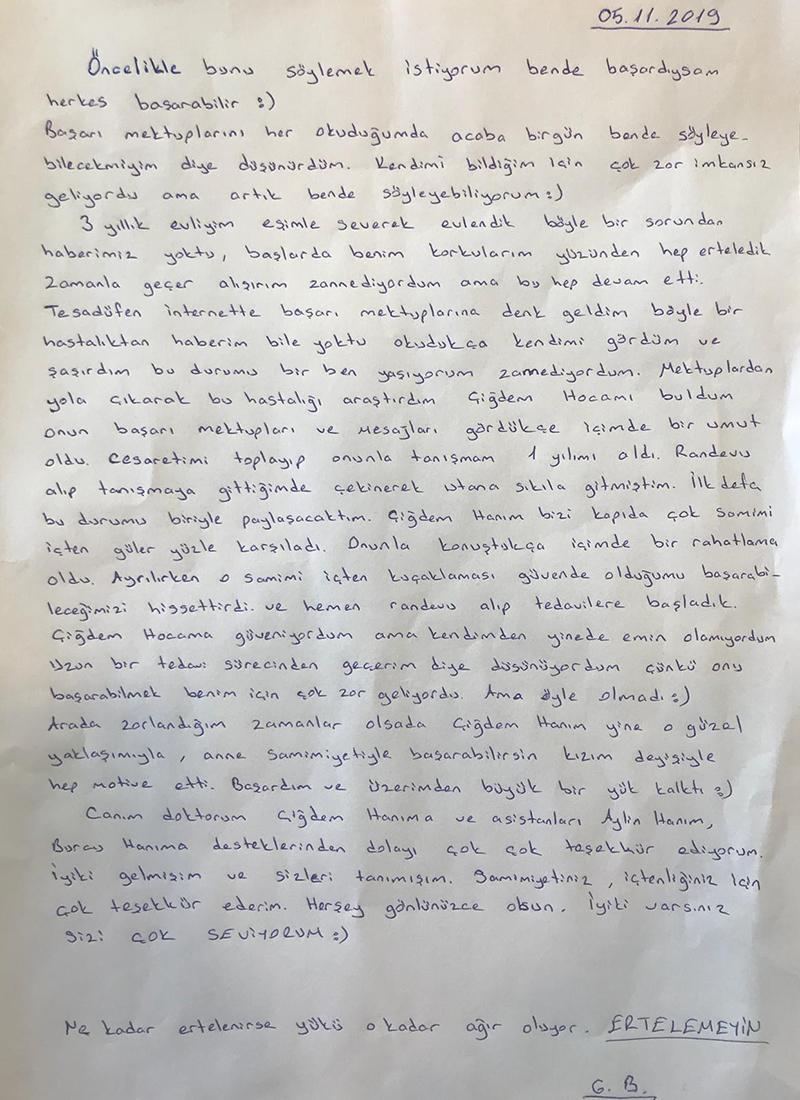 05.11.2019
Öncelikle bunu söylemek istiyorum bende başardıysam
herkes başarabilir :)
Başarı mektuplarını her okuduğumda acaba birgün bende söyleye-
bilecekmiyim diye düşünürdüm. Kendimi bildiğim için çok zor imkansız
geliyordu ama artık bende söyleyebiliyorum :)
3 yıllık evliyim eşimle severek evlendik böyle bir sorundan
haberimiz yoktu, başlarda benim korkularım yüzünden hep erteledik
Zamanla geçer alışırım zannediyordum ama bu hep devam etti.
Tesadüfen internette başarı mektuplarına denk geldim böyle bir
hastalıktan haberim bile yoktu okudukça kendimi gördüm ve
şaşırdım bu durumu bir ben yaşıyorum zannediyordum. Mektuplardan
yola çıkarak bu hastalığı araştırdım Çiğdem Hocamı buldum
onun başarı mektupları ve mesajları gördükçe içimde bir umut
oldu. Cesaretimi toplayıp onunla tanışmam 1 yılımı aldı. Randevu
alıp tanışmaya gittiğimde çekinerek utana sıkıla gitmiştim. İlk defa
bu durumu biriyle paylaşacaktım. Çiğdem Hanım bizi kapıda çok samimi
içten güler yüzle karşıladı. Onunla konuştukça içimde bir rahatlama
oldu. Ayrılırken o samimi içten kucaklaması güvende olduğumu başarabi-
leceğimizi hissettirdi. ve hemen randevu alıp tedavilere başladık.
Çiğdem Hocama güveniyordum ama kendimden yinede emin olamıyordum
Uzun bir tedavi sürecinden geçerim diye düşünüyordum çünkü onu
başarabilmek benim için çok zor geliyordu. Ama öyle olmadı :)
Arada zorlandığım zamanlar olsada Çiğdem Hanım yine o güzel
yaklaşımıyla, anne samimiyetiyle başarabilirsin kızım deyişiyle
hep motive etti. Başardım ve üzerimden büyük bir yük kalktı :)
Canım doktorum Çiğdem Hanıma ve asistanları Aylin Hanım,
Burcu Hanıma desteklerinden dolayı çok çok teşekkür ediyorum.
İyiki gelmişim ve sizleri tanımışım. Samimiyetiniz, içtenliğiniz için
çok teşekkür ederim. Herşey gönlünüzce olsun. İyiki varsınız
Sizi ÇOK SEVİYORUM :)
Ne kadar ertelenirse yükü o kadar ağır oluyor. ERTELEMEYİN
G. B.